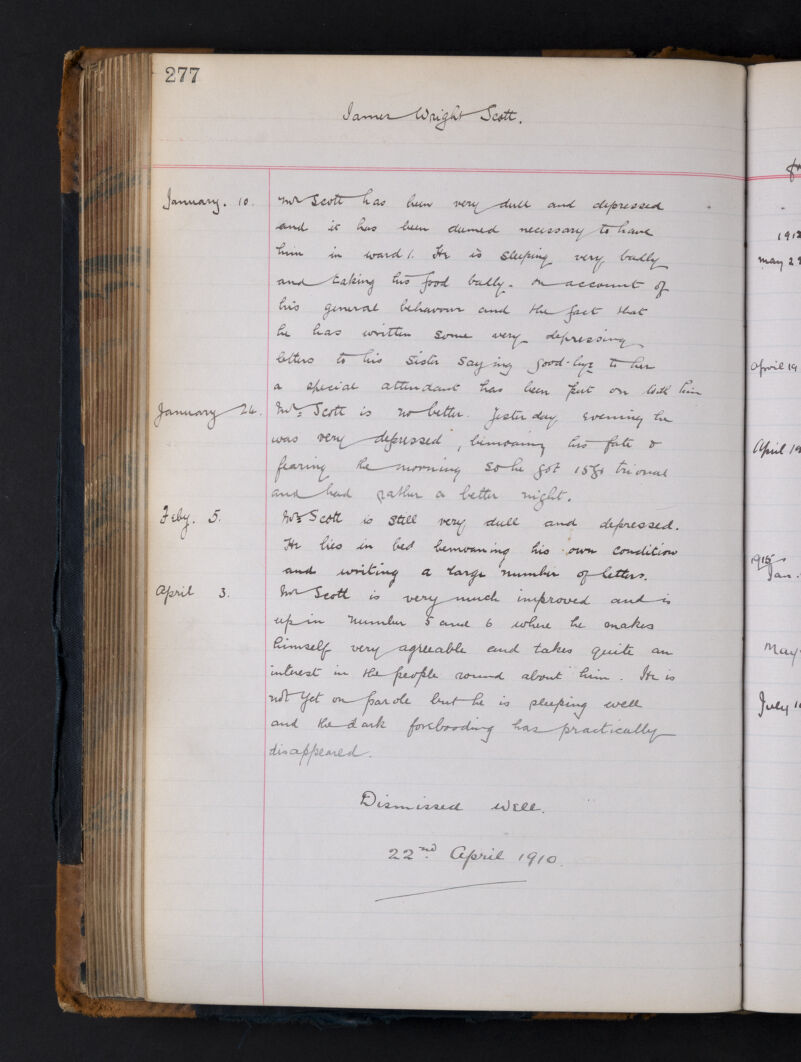 277
James Wright Scott.
January. 10. Mr Scott has been very dull and depressed
and it has been deemed necessary to have
him in ward 1. He is sleeping very badly
and taking his food badly. On account of
his general behaviour and the fact that
he has written some very depressing
letters to his sister saying good-bye to her
a special attendant has been put on with him
January 24. Mr. Scott is no better. Yesterday evening he
was very depressed, bemoaning his fate &
fearing the morning so he got 15grs trional
and had rather a better night.
Feby. 5. Mr Scott is still very dull and depressed.
He lies in bed bemoaning his own condition
and writing a large number of letters.
April 3. Mr Scott is very much improved and is
up in number 5 and 6 where he makes
himself very agreeable and takes quite an
interest in the people round about him. He is
not yet on parole but he is sleeping well
and the dark foreboding has practically
disappeared.
Dismissed well.
22nd April 1910.
May 2
April 19
April 19
1915
Jan.
May
July 1